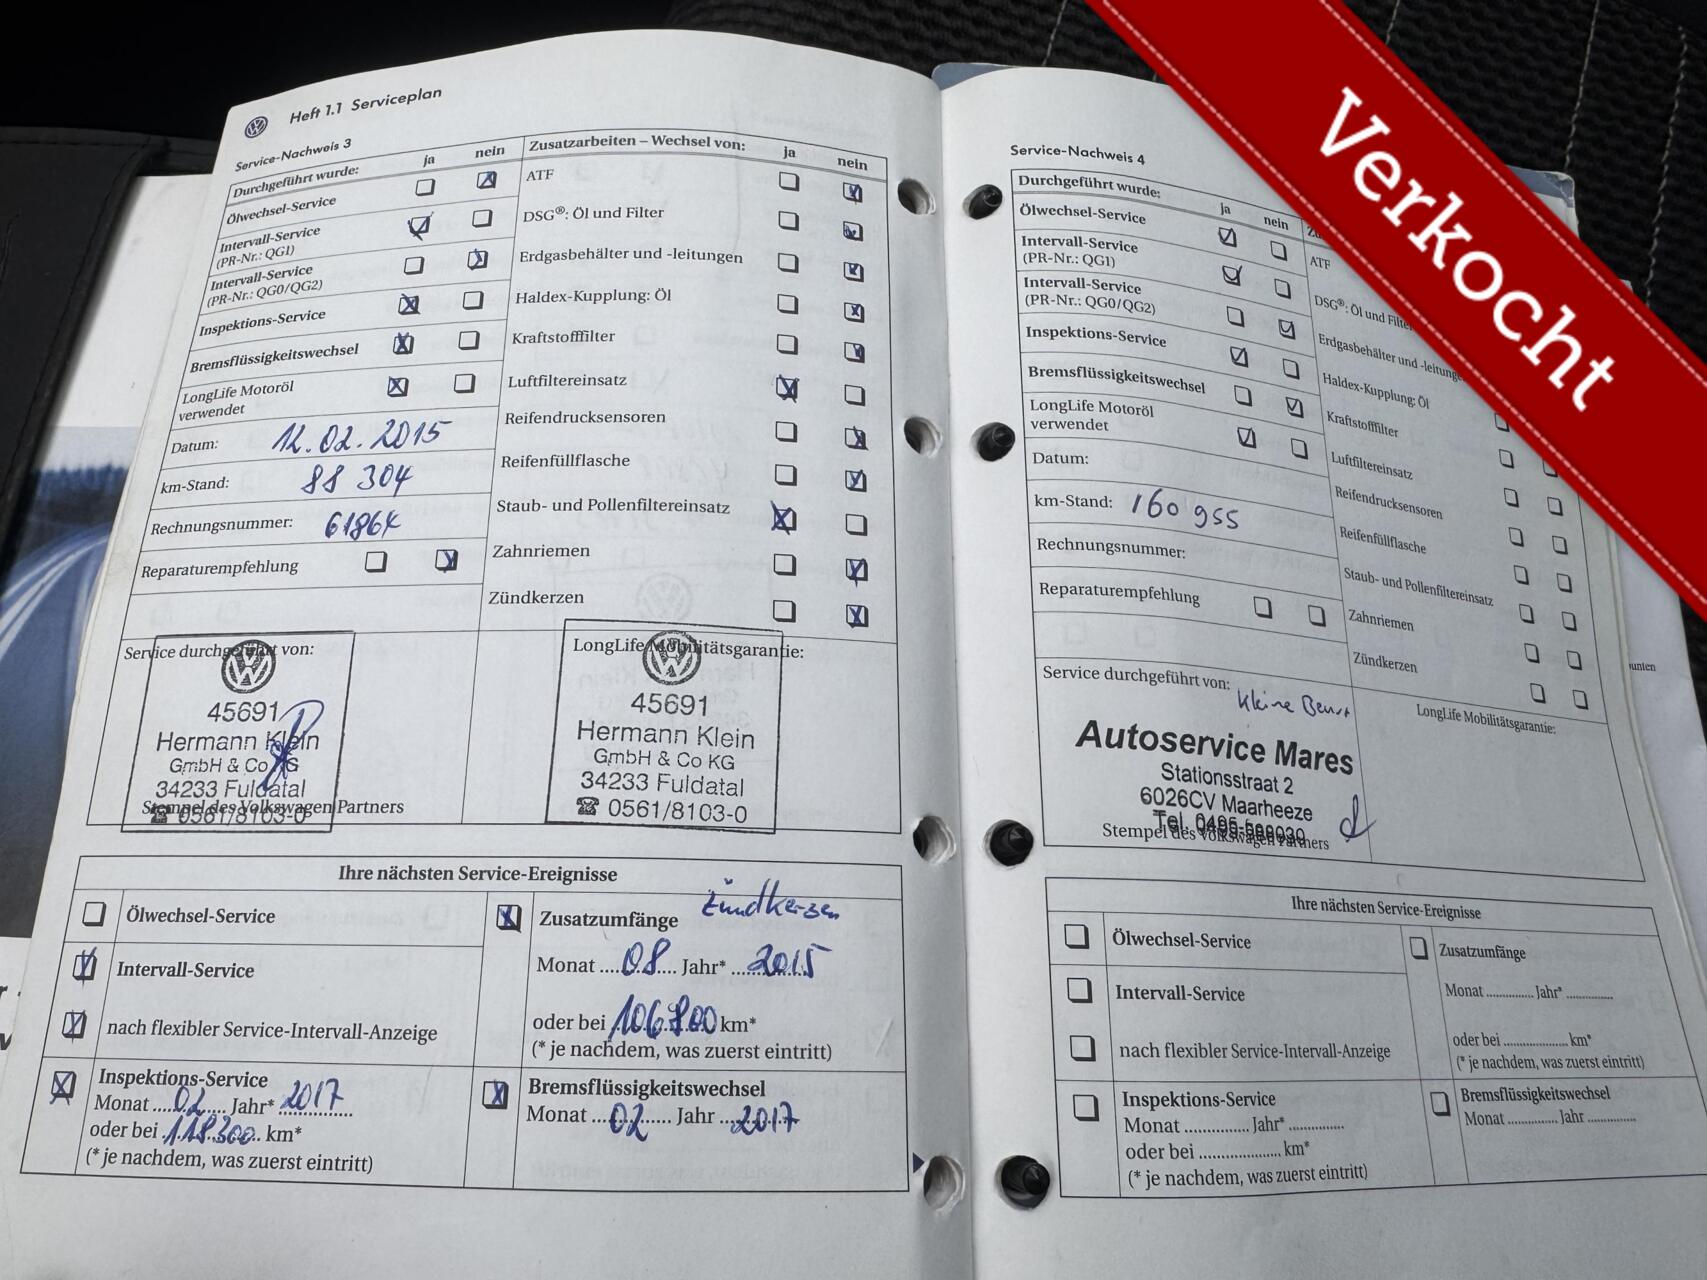 Heft 1.1 Serviceplan
Service-Nachweis 3
Durchgeführt wurde: ja nein
Ölwechsel-Service
Intervall-Service
(PR-Nr.: QG1)
Intervall-Service
(PR-Nr.: QG0/QG2)
Inspektions-Service
Bremsflüssigkeitswechsel
LongLife Motoröl
verwendet
Datum: 12.02.2015
km-Stand: 88 304
Rechnungsnummer:
Reparaturempfehlung
Zusatzarbeiten – Wechsel von: ja nein
ATF
DSG®: Öl und Filter
Erdgasbehälter und -leitungen
Haldex-Kupplung: Öl
Kraftstofffilter
Luftfiltereinsatz
Reifendrucksensoren
Reifenfüllflasche
Staub- und Pollenfiltereinsatz
Zahnriemen
Zündkerzen
Service durchgeführt von:
45691
Hermann Klein
GmbH & Co KG
34233 Fuldatal
0561/8103-0
Stempel des Volkswagen Partners
LongLife Mobilitätsgarantie:
45691
Hermann Klein
GmbH & Co KG
34233 Fuldatal
☎ 0561/8103-0
Ihre nächsten Service-Ereignisse
Ölwechsel-Service
Intervall-Service
nach flexibler Service-Intervall-Anzeige
Inspektions-Service
Monat 02 Jahr* 2017
oder bei 118300 km*
(* je nachdem, was zuerst eintritt)
Zündkerzen
Zusatzumfänge
Monat 08 Jahr* 2015
oder bei 106800 km*
(* je nachdem, was zuerst eintritt)
Bremsflüssigkeitswechsel
Monat 02 Jahr 2017
Service-Nachweis 4
Durchgeführt wurde: ja nein
Ölwechsel-Service
Intervall-Service
(PR-Nr.: QG1)
Intervall-Service
(PR-Nr.: QG0/QG2)
Inspektions-Service
Bremsflüssigkeitswechsel
LongLife Motoröl
verwendet
Datum:
km-Stand: 160 955
Rechnungsnummer:
Reparaturempfehlung
ATF
DSG®: Öl und Filter
Erdgasbehälter und -leitungen
Haldex-Kupplung: Öl
Kraftstofffilter
Luftfiltereinsatz
Reifendrucksensoren
Reifenfüllflasche
Staub- und Pollenfiltereinsatz
Zahnriemen
Zündkerzen
Service durchgeführt von: Kleine Beurt
Autoservice Mares
Stationsstraat 2
6026CV Maarheeze
Tel.
Stempel des Volkswagen Partners
LongLife Mobilitätsgarantie:
Ihre nächsten Service-Ereignisse
Ölwechsel-Service
Intervall-Service
nach flexibler Service-Intervall-Anzeige
Inspektions-Service
Monat .............. Jahr* ..............
oder bei ..................... km*
(* je nachdem, was zuerst eintritt)
Zusatzumfänge
Monat .............. Jahr* ..............
oder bei ..................... km*
(* je nachdem, was zuerst eintritt)
Bremsflüssigkeitswechsel
Monat .............. Jahr ..............
Verkocht